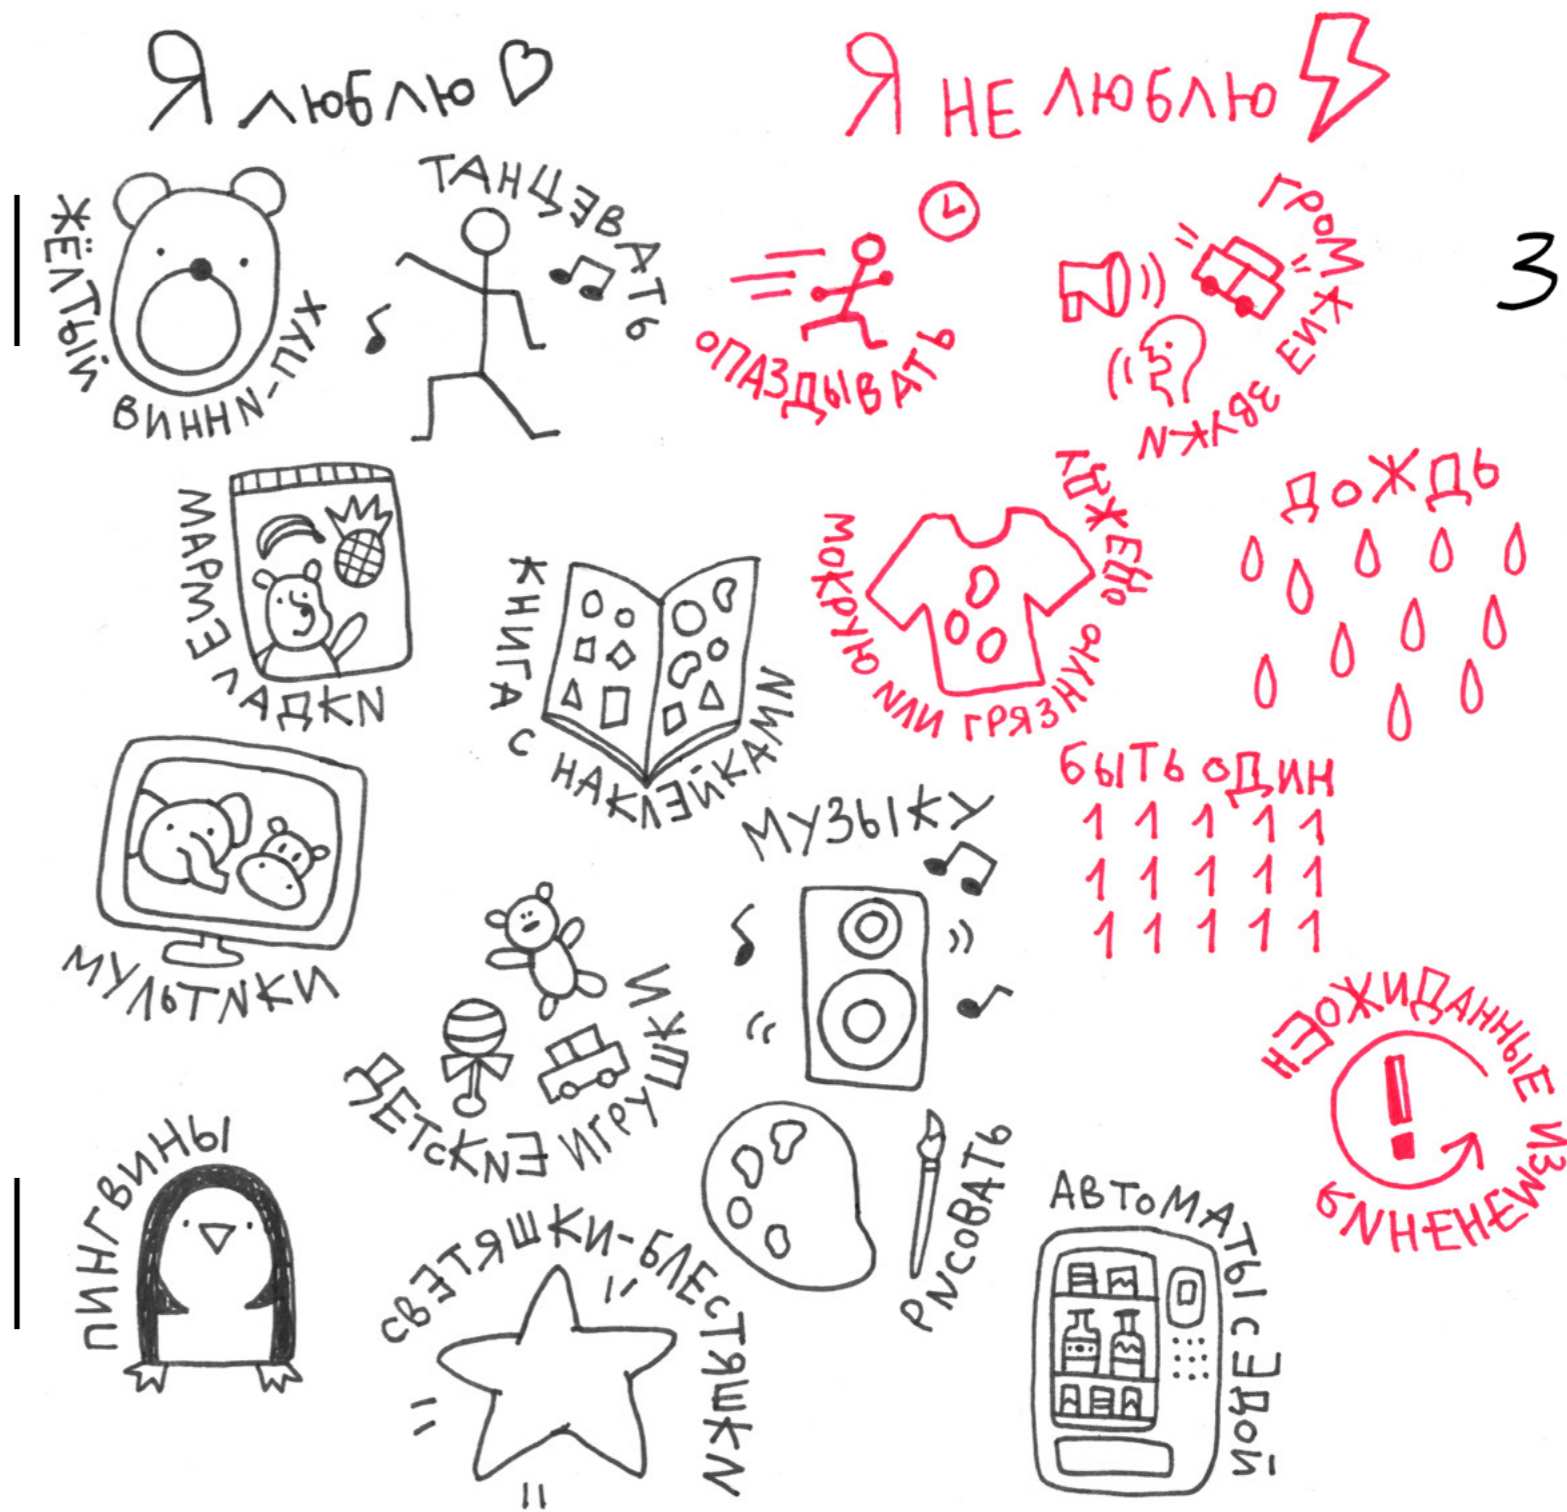 Я люблю
ЖЁЛТЫЙ ВИННИ-ПУХ
ТАНЦЭВАТЬ
МАРМЭЛАДКИ
КНИГА С НАКЛЭЙКАМИ
МУЛЬТИКИ
ДЕТСКИЭ ИГРУШКИ
МУЗЫКУ
ПИНГВИНЫ
СВЭТЯШКИ-БЛЕСТЯШКИ
РИСОВАТЬ
АВТОМАТЫ С ЭДОЙ
Я НЕ ЛЮБЛЮ
ОПАЗДЫВАТЬ
ГРОМКИЭ ЗВУКИ
МОКРУЮ ИЛИ ГРЯЗНУЮ ОДЕЖДУ
ДОЖДЬ
БЫТЬ ОДИН
1 1 1 1 1
1 1 1 1 1
1 1 1 1 1
НЕОЖИДАННЫЕ ИЗМЕНЕНИЯ
3